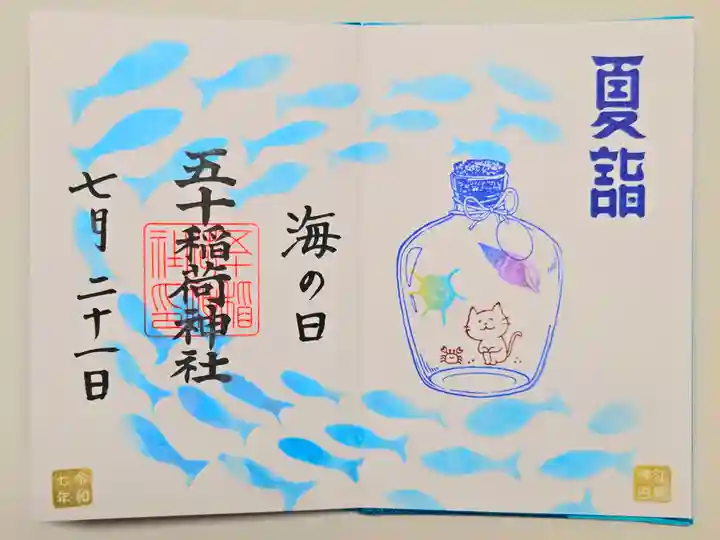 夏詣
海の日
五十稲荷神社
七月二十一日
令和
七年